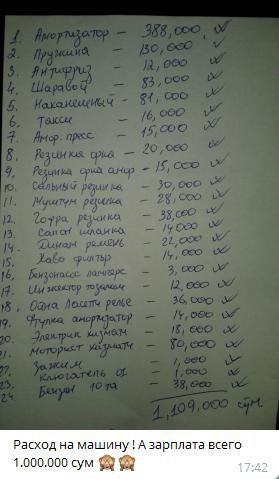 1. Амортизатор – 388,000
2. Пружина – 130,000
3. Антифриз – 12,000
4. Шаравой – 83,000
5. Наканешный – 81,000
6. Такси – 16,000
7. Амор. пресс – 15,000
8. Резинка – 20,000
9. Резинка амор – 15,000
10. резинка – 30,000
11. резинка – 28,000
12. Гофра резинка – 38,000
13. Сапог шланка – 14000
14. Динам ремень – 22,000
15. Хаво филтр – 14,000
16. Бензонасос – 3,000
17. Инжектор – 12,000
18. релье – 36,000
19. Втулка амортизатор – 14,000
20. Электрик хизмати – 18,000
21. Моторист хизмати – 80,000
22. Зажим – 1,000
23. – 1,000
24 Бензин 10 та – 38,000
1,109,000 сўм.
Расход на машину ! А зарплата всего
1.000.000 сум 🙈🙈
17:42